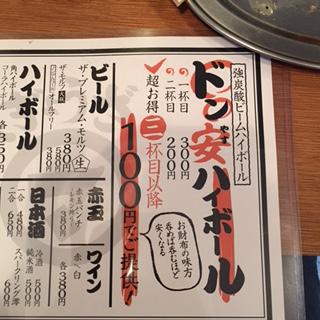 強炭酸ビームハイボール
ドン安ハイボール
やす
一杯目 300円
二杯目 200円
超お得
三杯目以降
100円でご提供!
お財布の味方
呑めば呑むほど
安くなる
ビール
ザ・プレミアム・モルツ(生)
380円
ザ・モルツ
オールフリー
380円
ハイボール
角ハイボール
コークハイボール
各350円
赤玉
赤玉パンチ
380円
ワイン
赤・白
各380円
日本酒
一合 480円
二合 650円
冷酒
純米酒
スパークリング澪